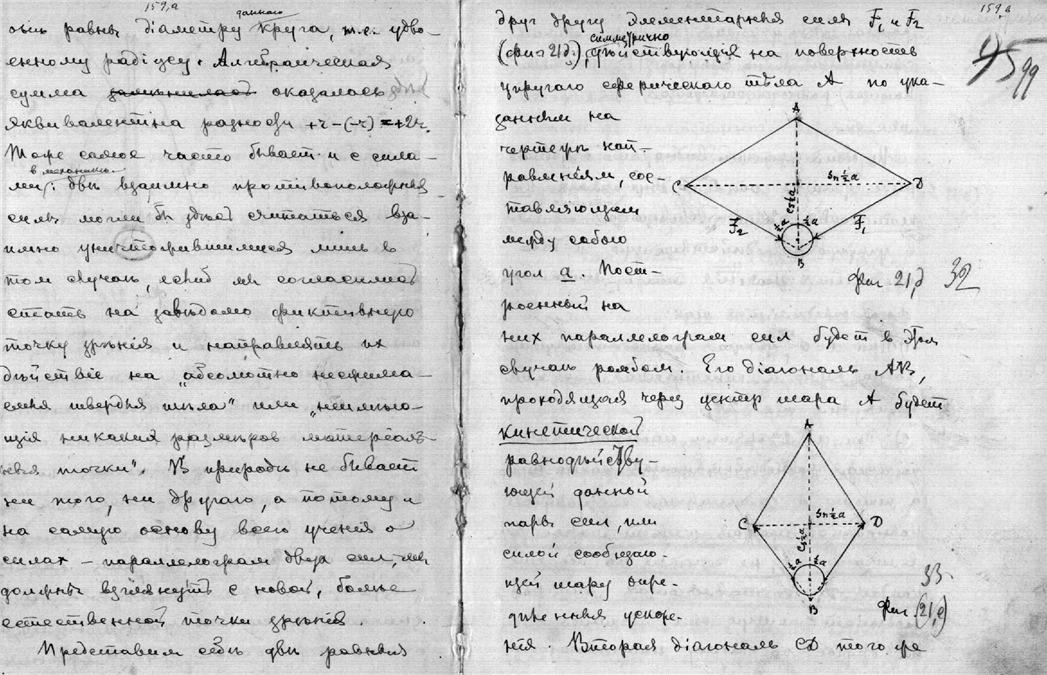 159,а
данного
ось равнъ діаметру круга, т.е. удво-
енному радіусу. Алгебраическая
сумма оказалась
эквивалентна разности +r-(-r)=+2r.
Тоже самое часто бываетъ и с сила-
в механикѣ
ми: двѣ взаимно противоположныя
силы могли бы здѣсь считаться вза-
имно уничтожившимися лишь в
том случаѣ, если б мы согласились
стать на завѣдомо фиктивную
точку зрѣнія и направлять их
дѣйствіе на „абсолютно несжима-
емыя твердыя тѣла" или „неимѣю-
щія никаких размѣров матеріаль-
ныя точки". В природѣ не бывает
ни того, ни другаго, а потому и
на самую основу всего ученія о
силах – параллелограм двух сил, мы
должны взглянуть с новой, болѣе
естественной точки зрѣнія.
Представим себѣ двѣ равныя
159 б
99
друг другу элементарныя силы F1 и F2
симметрично
(фиг 21д.), дѣйствующія на поверхность
упругаго сферическаго тѣла А по ука-
занным на
чертежѣ нап-
равленіям, сос-
тавляющим
между собою
угол a. Пост-
роенный на
них параллелограм сил будет в этом
случаѣ ромбом. Его діагональ АВ,
проходящая через центр шара А будет
кинетической
равнодѣйству-
ющей данной
пары сил, или
силой сообщаю-
щей шару опре-
дѣленныя ускоре-
нія. Вторая діагональ CD того же
A
C
Sn½a
D
Cs½a
F2
F1
½a
½a
B
Фиг 21,д
32
A
C
Sn½a
D
Cs½a
½a
½a
B
33
Фиг (21,е)